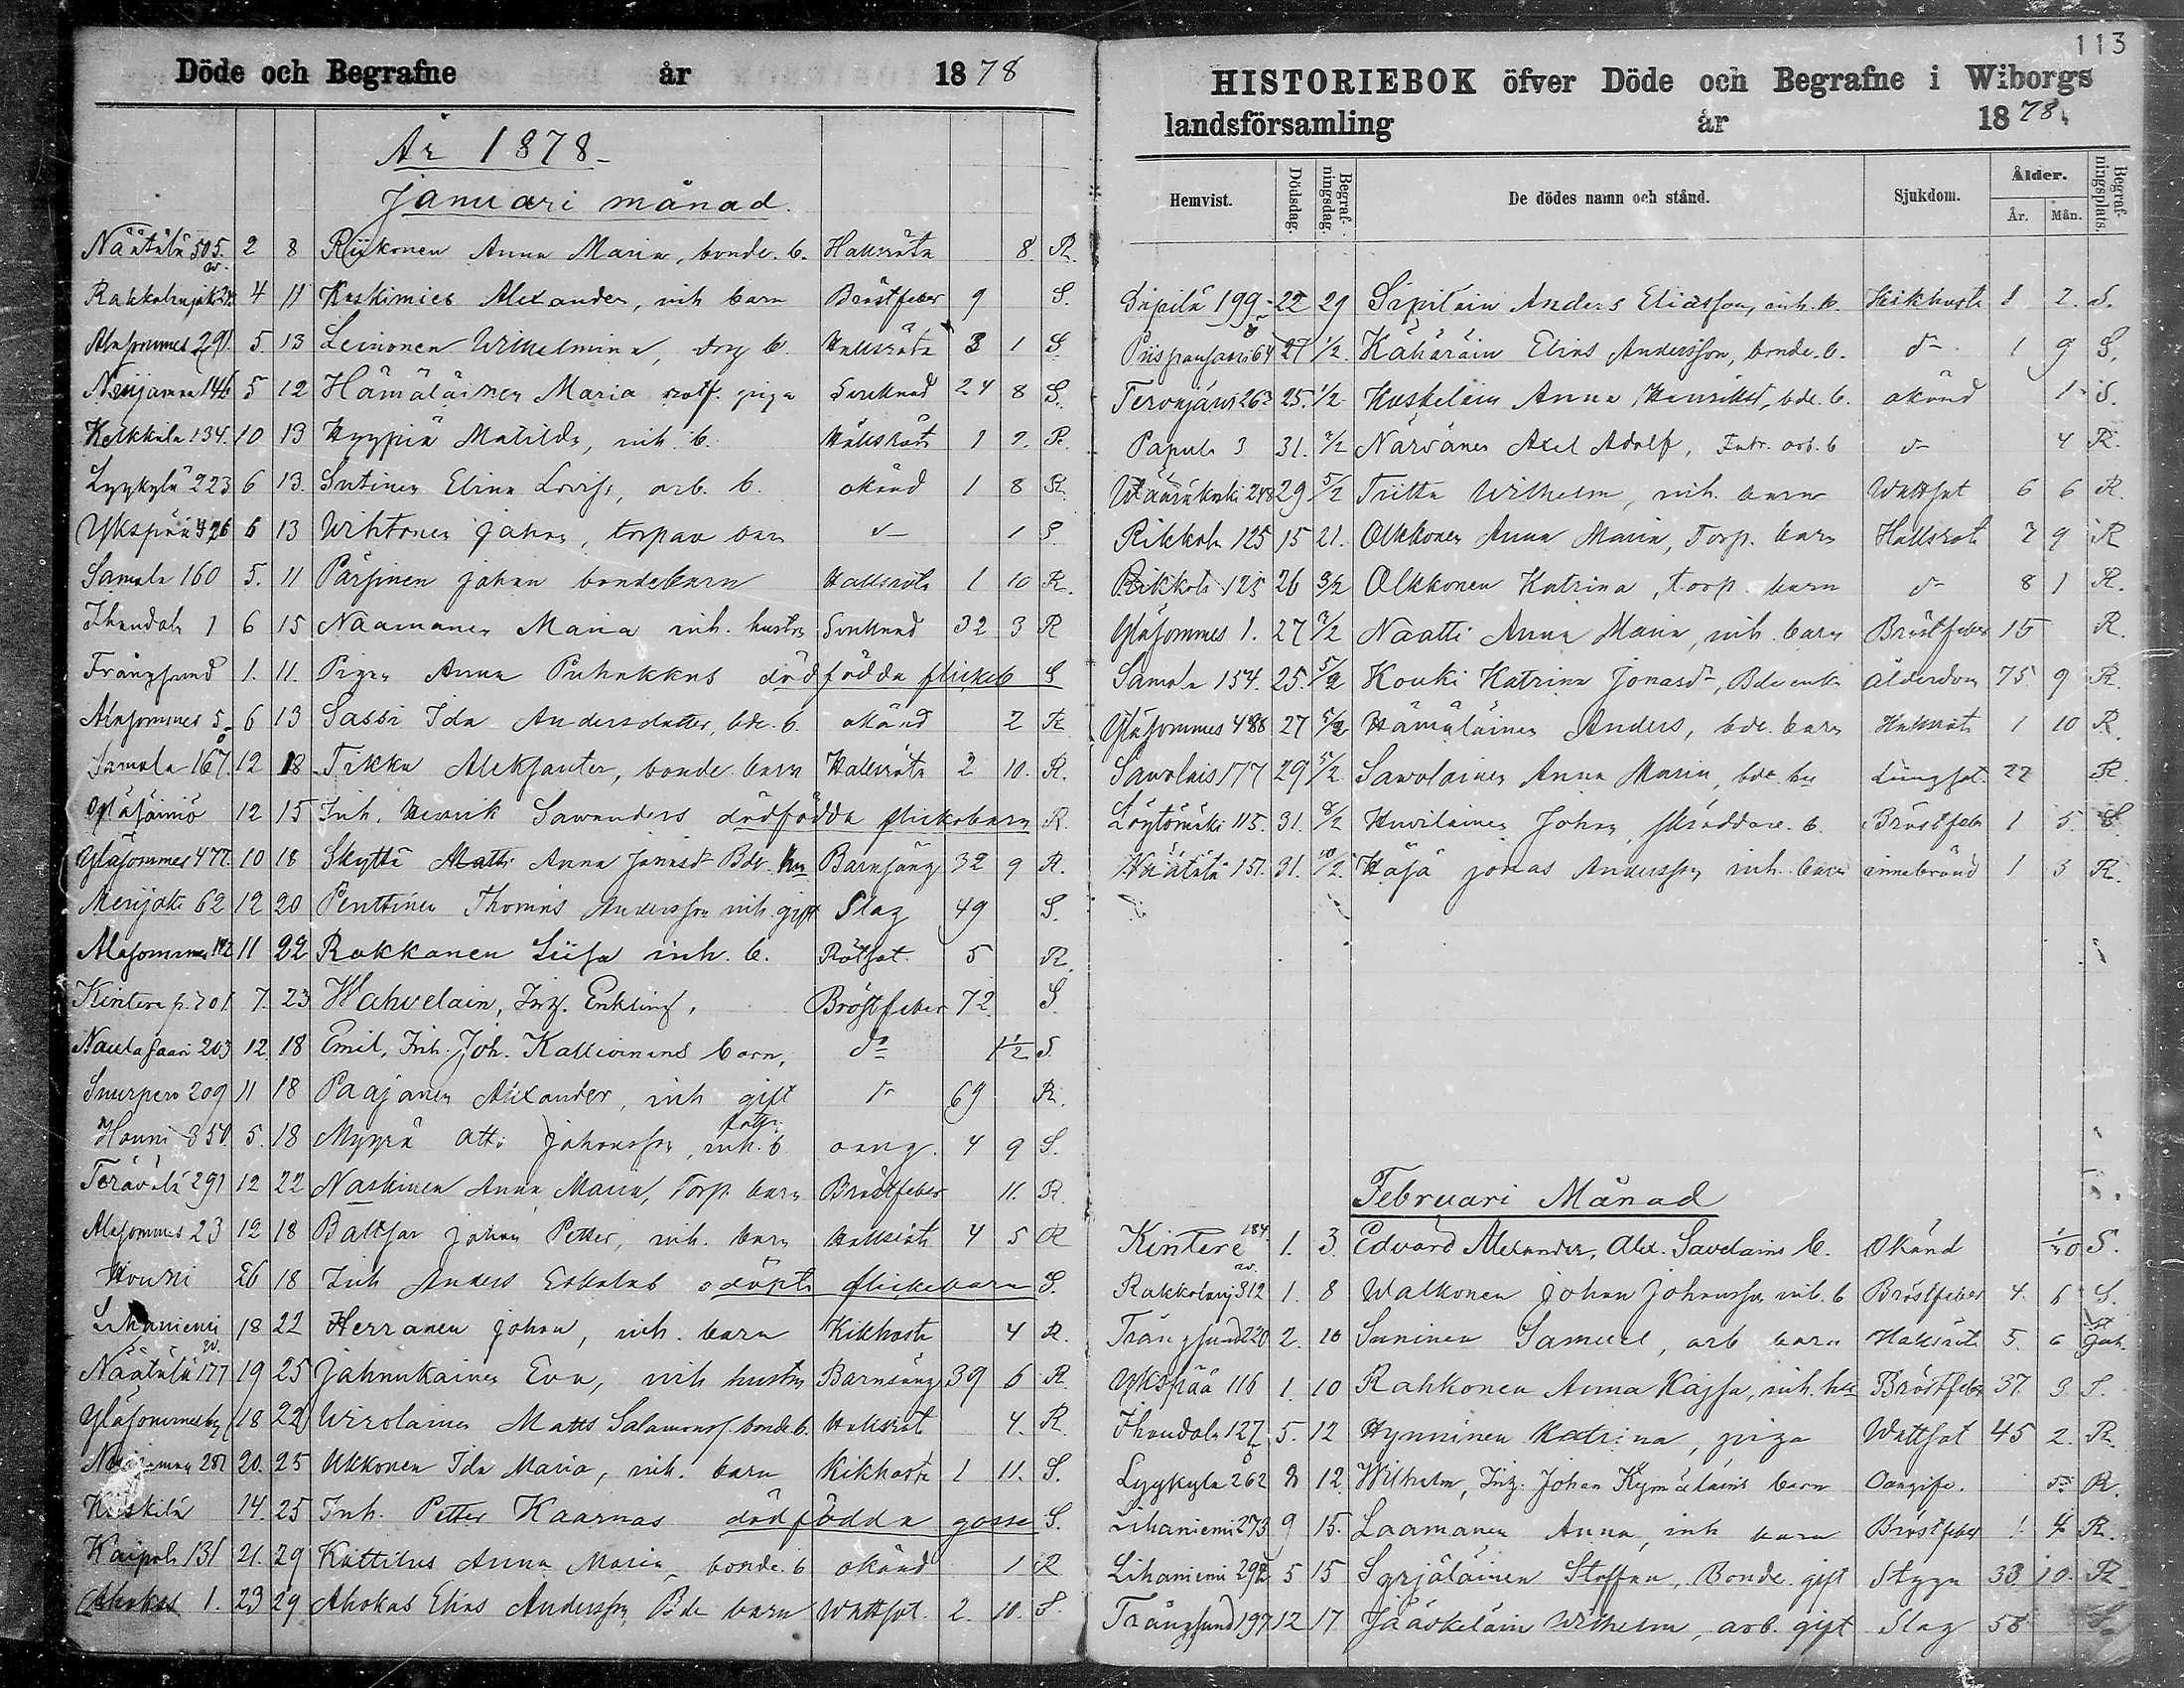 Döde och Begrafne år 1878
År 1878
Januari månad.
Näätälä 505. 2 8 Riikonen Anna Maria, bonde. b. Hallsröta 8. R.
4 11 Koskimies Alexander, inh barn Bröstfeber 9 S.
Alasommes 291. 5. 13 Leinonen Wilhelmina, b. Hallsröta 3 1 S.
Nuijamaa 146 5 12 Hämäläinen Maria rotf. piga Lunknad 24 8 S.
Kelkkala 134. 10 13 Hyypiä Matilda, inh. b. Hallsröta 1 2. R.
Lyykylä 223 6 13. Sutinen Elina Lovisa, arb. b. okänd 1 8 R.
Ykspää 426 6 13 Wihtonen Johan, torpare barn d- 1 S.
Samola 160 5. 11 Pärsinen Johan bondebarn Hallsröta 1 10 R.
Ihandala 1 6 15 Naamanen Maria inh. hustru Lunknad 32 3 R
Trångsund 1. 11. Pigan Anna Puhakkas dödfödda flickeb S
Alasommes 5 6 13 Sassi Ida Andersdotter, bde. b. okänd 2 R
Samola 167. 12 18 Tikka Aleksanter, bonde barn Hallsröta 2 10. R.
Yläsäiniö 12 15 Inh. Henrik Sawanders dödfödda flickebarn R.
Yläsommes 477. 10 18 Skyttä Anna Jonasdr Bde. hu Barnsäng 32 9 R.
Merijoki 62 12 20 Penttinen Thomas Andersson inh. gift Slag 49 S.
Alasommes 192 11 22 Rakkanen Liisa inh. b. Rötsot 5 R.
Kintere p. 201. 7. 23 Wahvelain, Inh. Enkling, Bröstfeber 72. S.
Naulasaari 203 12. 18 Emil, Inh. Joh. Kallioinens barn, do 1 1/2 S.
Suurpero 209 11 18 Paajanen Alexander, inh gift d- 69 R.
Houni 350 5. 18 Myyrä Otto Johansson, inh. b oang. 4 9 S.
Terävälä 291 12 22 Naskinen Anna Maria, Torp. barn Bröstfeber 11. R.
Alasommes 23 12 18 Baltsar Johan Petter, inh. barn Hallsröta 4 5 R
Houni 26 18 Inh Anders Eskolas odöpta flickebarn S.
Lihaniemi 18 22 Herranen Johan, inh. barn Kikhosta 4 R.
Näätälä 177 19 25 Jahnukainen Eva, inh hustru Barnsäng 39 6 R.
Yläsommes 18 22 Wirolainen Matts Salamonss. bonde b. Hallsröta 4. R.
20. 25 Ukkonen Ida Maria, inh. barn Kikhosta 1 11. S.
Koskilä 14. 25 Inh. Petter Kaarnas dödfödda gosse S.
Kaipola 131 21. 29 Kattilus Anna Maria bonde. b okänd 1 R
Ahokas 1. 23 29 Ahokas Elias Andersson Bde barn Wattsot. 2. 10. S.
113
HISTORIEBOK öfver Döde och Begrafne i Wiborgs
landsförsamling år 1878.
Hemvist. Dödsdag. Begrafningsdag. De dödes namn och stånd. Sjukdom. Ålder. År. Mån. Begrafningsplats
Sipilä 199 22 29 Sipiläin Anders Eliasson, inh. b. Kikhosta 1 2. S.
Piispansaari 64 27 1/2. Kähäräin Elias Andersson, bonde. b. d- 1 9 S.
Tervajärvi 263 25. 1/2 Koskelain Anna Henriksd, bde. b. okänd 1 S.
Papula 3 31. 2/2 Närvänen Axel Adolf, Fabr. arb. b d- 4 R.
248 29 5/2 Tiitta Wilhelm, inh. barn Wattsot 6 6 R.
Rikkola 125 15 21. Olkkonen Anna Maria, Torp. barn Hallsröta 2 9 R
Rikkola 125 26 3/2 Olkkonen Katrina, torp. barn d- 8 1 R.
Yläsommes 1. 27 2/2 Naatti Anna Maria, inh. barn Bröstfeber 15 R.
Samola 154. 25. 5/2 Kouki Katrina Jonasdr, Bde enka Ålderdom 75. 9 R.
Yläsommes 488 27 5/2 Hämäläinen Anders, bde. barn Hallsröta 1 10 R.
Sawolais 177 29 5/2 Sawolainen Anna Maria, bde. hu Lungsot 22 R.
Löytömäki 113. 31. 8/2 Huvilainen Johan, skräddare. b. Bröstfeber 1 5. S.
Näätälä 151. 31. 10/2. Häsä Jonas Andersson inh. barn innebränd 1 3 R.
Februari Månad
Kintere 184 1. 3. Edvard Alexander, Alex. Savelains b. Okänd 1/30 S.
Rakkolanj 312 1. 8 Walkonen Johan Johansson inh. b Bröstfeber 4. 6 S.
Trångsund 220 2. 10 Suninen Samuel, arb barn Hallsröta 5. 6
Ykspää 116 1. 10 Rahkonen Anna Kajsa, inh. hu Bröstfeber 37. 3. S.
Ihandala 127 5. 12 Hynninen Katrina, piga Wattsot 45 2. R.
Lyykylä 262 8 12. Wilhelm, Inh. Johan Kymäläins barn Oangifv. R.
Lihaniemi 273 9 15. Laamanen Anna, inh barn Bröstfeber 1. 4 R.
Lihaniemi 292 5 15 Syrjäläinen Staffan, Bonde gift Stygn 33 10. R.
Trångsund 197 12 17. Jääskeläin Wilhelm, arb. gift Slag 58 S.